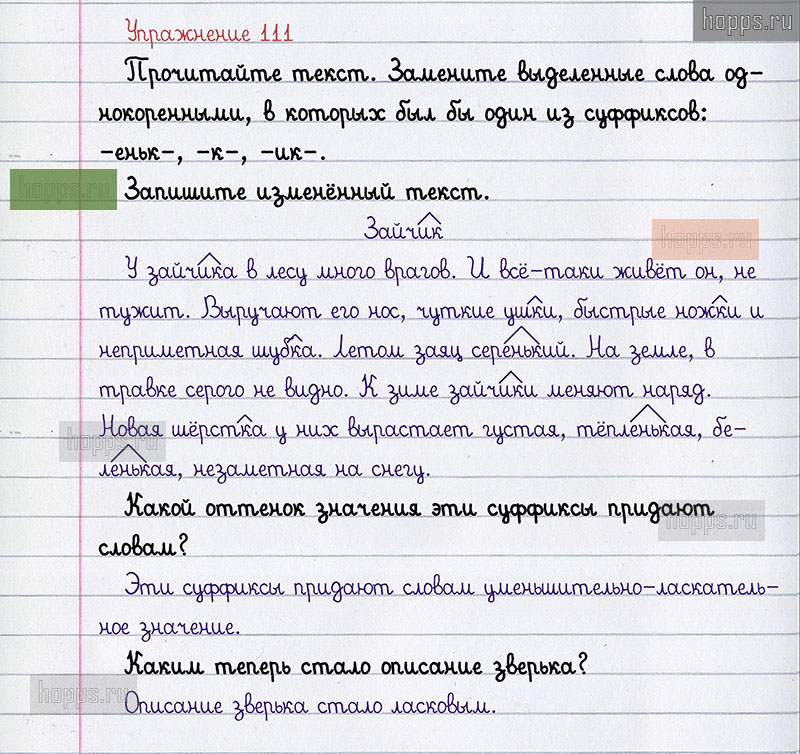 hopps.ru
Упражнение 111
Прочитайте текст. Замените выделенные слова од-
нокоренными, в которых был бы один из суффиксов:
-еньк-, -к-, -ик-.
hopps.ru
Запишите изменённый текст.
Зайчик
hopps.ru
У зайчика в лесу много врагов. И всё-таки живёт он, не
тужит. Выручают его нос, чуткие ушки, быстрые ножки и
неприметная шубка. Летом заяц серенький. На земле, в
травке серого не видно. К зиме зайчики меняют наряд.
Новая шёрстка у них вырастает густая, тёпленькая, бе-
hopps.ru
ленькая, незаметная на снегу.
Какой оттенок значения эти суффиксы придают
hopps.ru
словам?
Эти суффиксы придают словам уменьшительно-ласкатель-
ное значение.
Каким теперь стало описание зверька?
hopps.ru
Описание зверька стало ласковым.